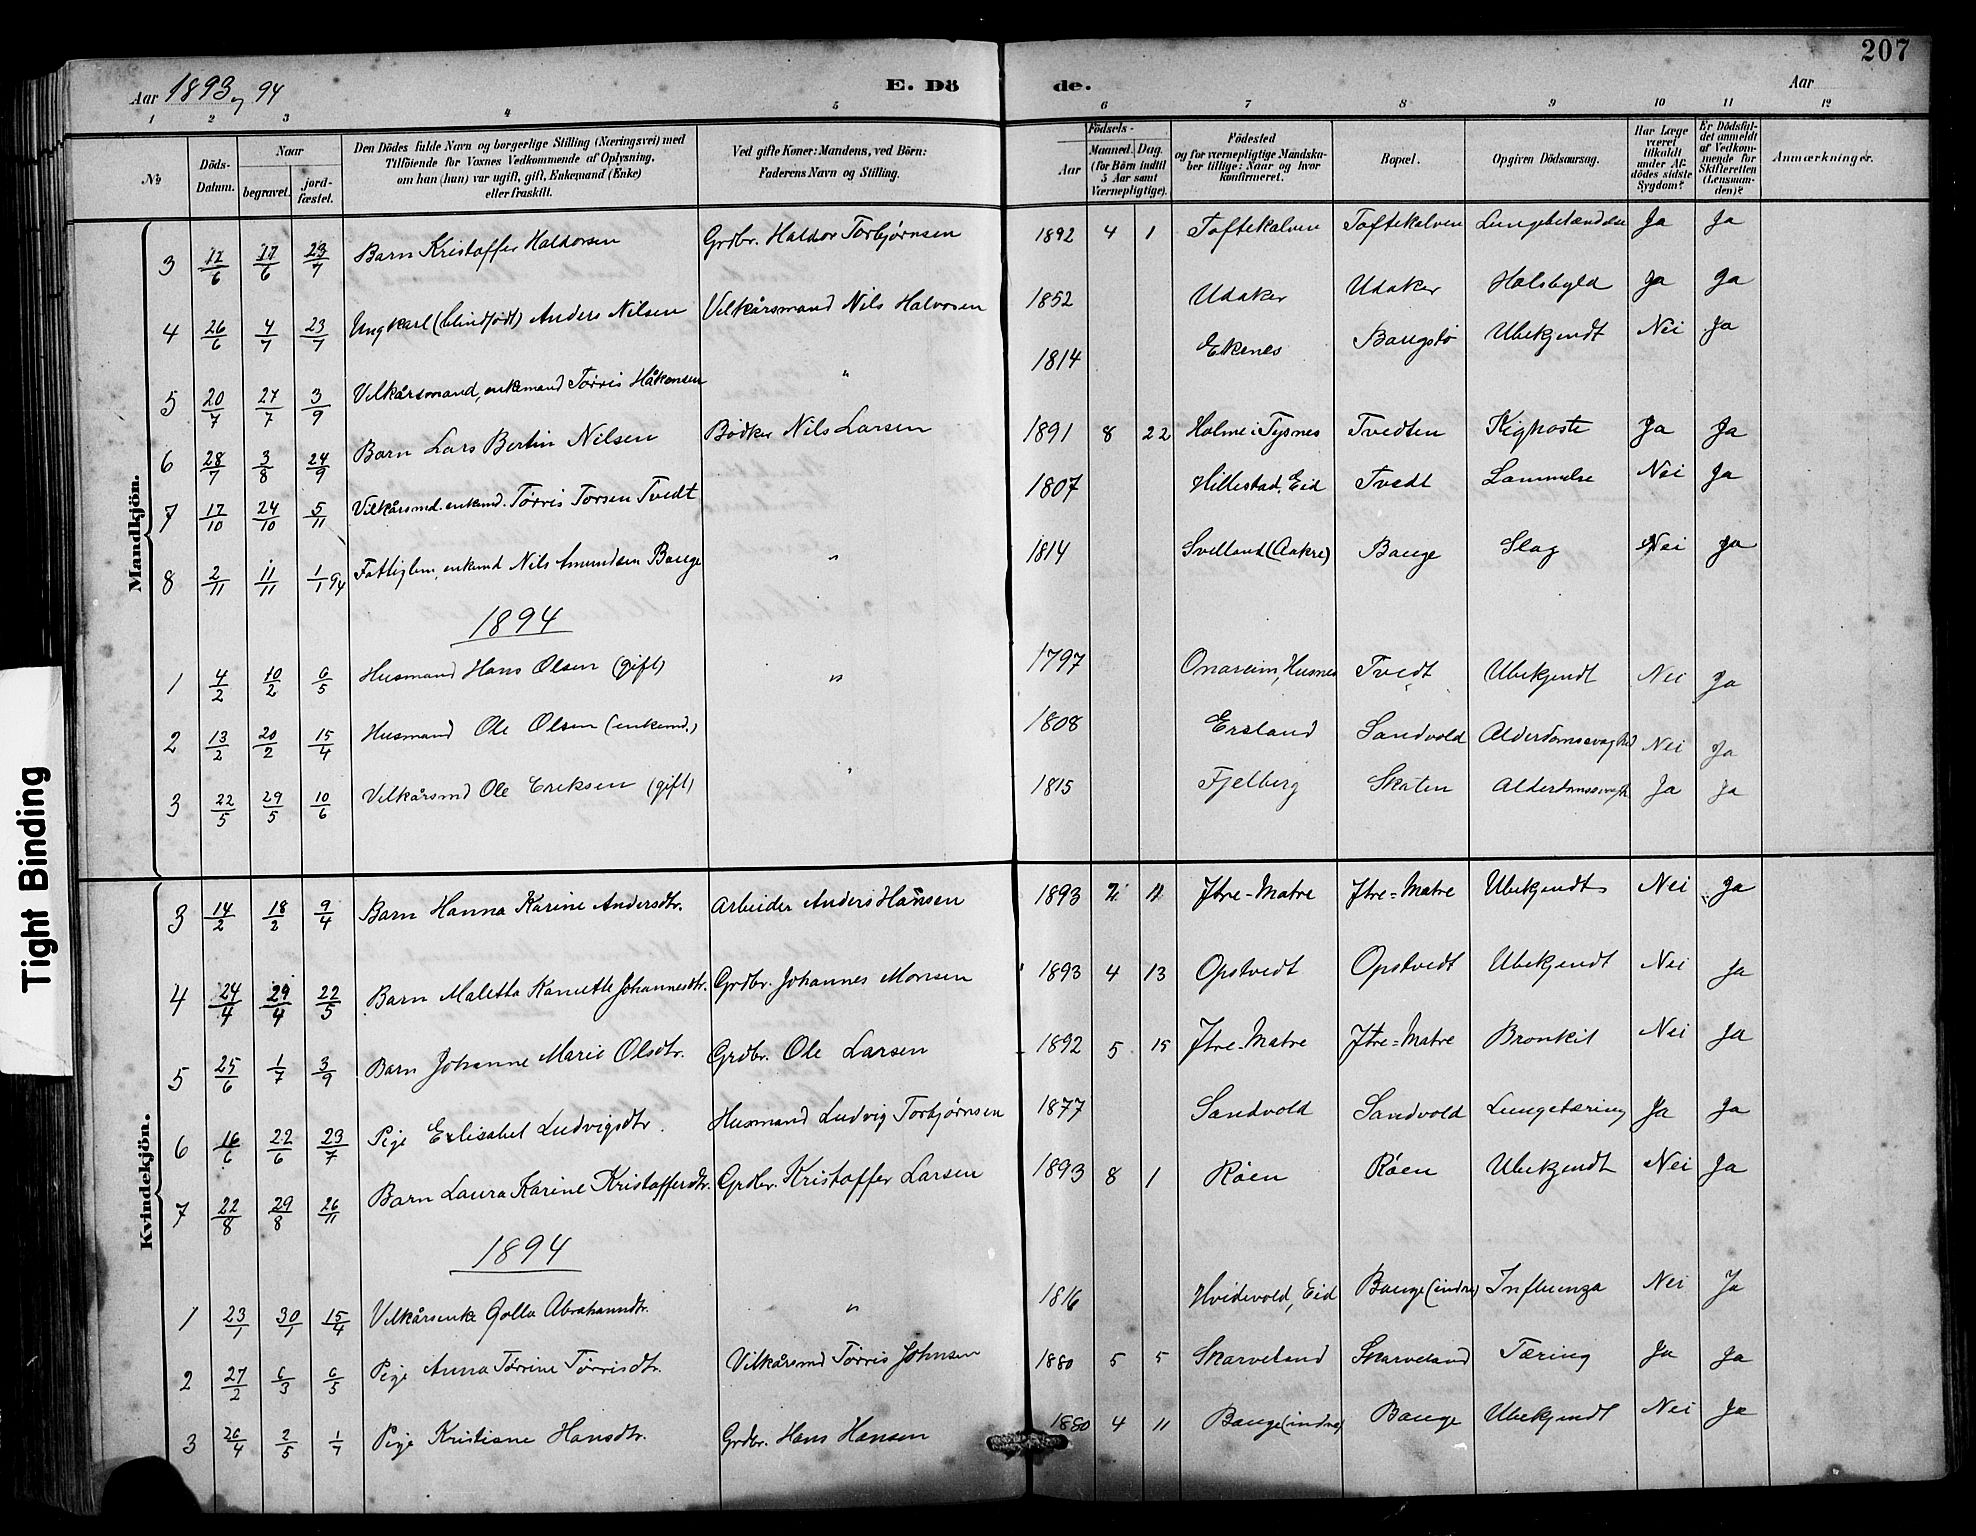 207
Aar 1893 og 94 E. Dö de. Aar
1 2 3 4 5 6 7 8 9 10 11 12
№
Döds-Datum.
Naar begravet. jord-fæstet.
Den Dödes fulde Navn og borgerlige Stilling (Næringsvei) med Tilföiende for Voxnes Vedkommende af Oplysning, om han (hun) var ugift, gift, Enkemand (Enke) eller fraskilt.
Ved gifte Koner: Mandens, ved Börn: Faderens Navn og Stilling.
Födsels- Aar Maaned. Dag. (for Börn indtil 5 Aar samt Værnepligtige).
Födested og for værnepligtige Mandskaber tillige: Naar og hvor konfirmeret.
Bopæl.
Opgiven Dödsaarsag.
Har Læge været tilkaldt under Afdödes sidste Sygdom?
Er Dödsfaldet anmeldt af Vedkommende for Skifteretten (Lensmanden)?
Anmærkninger.
Mandkjön.
3 17/6 23/7 Barn Kristoffer Haldorsen Grdbr. Haldor Torbjørnsen 1892 4 1 Toftekalven Toftekalven Lungebetændelse Ja Ja
4 26/6 4/7 23/7 Ungkarl (blindfødt) Anders Nilsen Vilkårsmand Nils Halvorsen 1852 Udaker Udaker Halsbyld Ja Ja
5 20/7 27/7 3/9 Vilkårsmand, enkemand Tørris Håkonsen " 1814 Ekenes Baugstø Ubekjendt Nei Ja
6 28/7 3/8 24/9 Barn Lars Bertin Nilsen Bødker Nils Larsen 1891 8 22 Holme i Tysnes Tvedten Kighoste Ja Ja
7 17/10 24/10 5/11 Vilkårsmd. enkemd. Tørris Torsen Tvedt 1807 Hillestad, Eid Tvedt Lammelse Nei Ja
8 2/11 11/11 1/1 94 Fattiglem, enkemd Nils Amundsen Bauge " 1814 Svelland (Aakre) Bauge Slag Nei Ja
1894
1 4/2 10/2 6/5 Husmand Hans Olsen (gift) " 1797 Onareim, Husnes Tvedt Ubekjendt Nei Ja
2 13/2 20/2 15/4 Husmand Ole Olsen (enkemd.) 1808 Ersland Sandvold Alderdomssvaghed Nei Ja
3 22/5 29/5 10/6 Vilkårsmd Ole Eriksen (gift) " 1815 Fjelberg Skåten Alderdomssvagh Ja Ja
Kvindekjön.
3 14/2 18/2 9/4 Barn Hanna Karine Andersdtr. Arbeider Anders Hansen 1893 2 11 Ytre-Matre Ytre-Matre Ubekjendt Nei Ja
4 24/4 29/4 22/5 Barn Maletta Kanutte Johannesdtr. Grdbr. Johannes Monsen 1893 4 13 Opstvedt Opstvedt Ubekjendt Nei Ja
5 25/6 1/7 3/9 Barn Johanne Marie Olsdtr. Grdbr. Ole Larsen 1892 5 15 Ytre-Matre Ytre-Matre Bronkit Nei Ja
6 16/6 22/6 23/7 Pige Erlisabet Ludvigsdtr. Husmand Ludvig Torbjørnsen 1877 Sandvold Sandvold Lungetæring Ja Ja
7 22/8 29/8 26/11 Barn Laura Karine Kristoffersdtr. Grdbr. Kristoffer Larsen 1893 8 1 Røen Røen Ubekjendt Nei Ja
1894
1 23/1 30/1 15/4 Vilkårsenke Golla Abrahamsdtr. " 1816 Hvidevold, Eid Bauge (indre) Influenza Nei Ja
2 27/2 6/3 6/5 Pige Anna Tørrine Tørrisdtr. Vilkårsmd Tørris Johnsen 1880 5 5 Skarveland Skarveland Tæring Ja Ja
3 26/4 2/5 1/7 Pige Kristiane Hansdtr. Grdbr. Hans Hansen 1880 4 11 Bauge (indre) Bauge Ubekjendt Nei Ja
Tight Binding